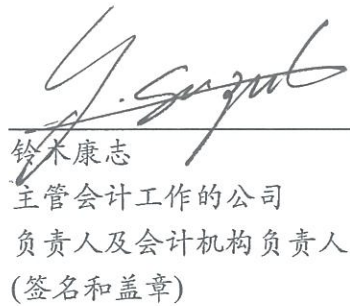 Y. Suzuki
铃木康志
主管会计工作的公司
负责人及会计机构负责人
(签名和盖章)